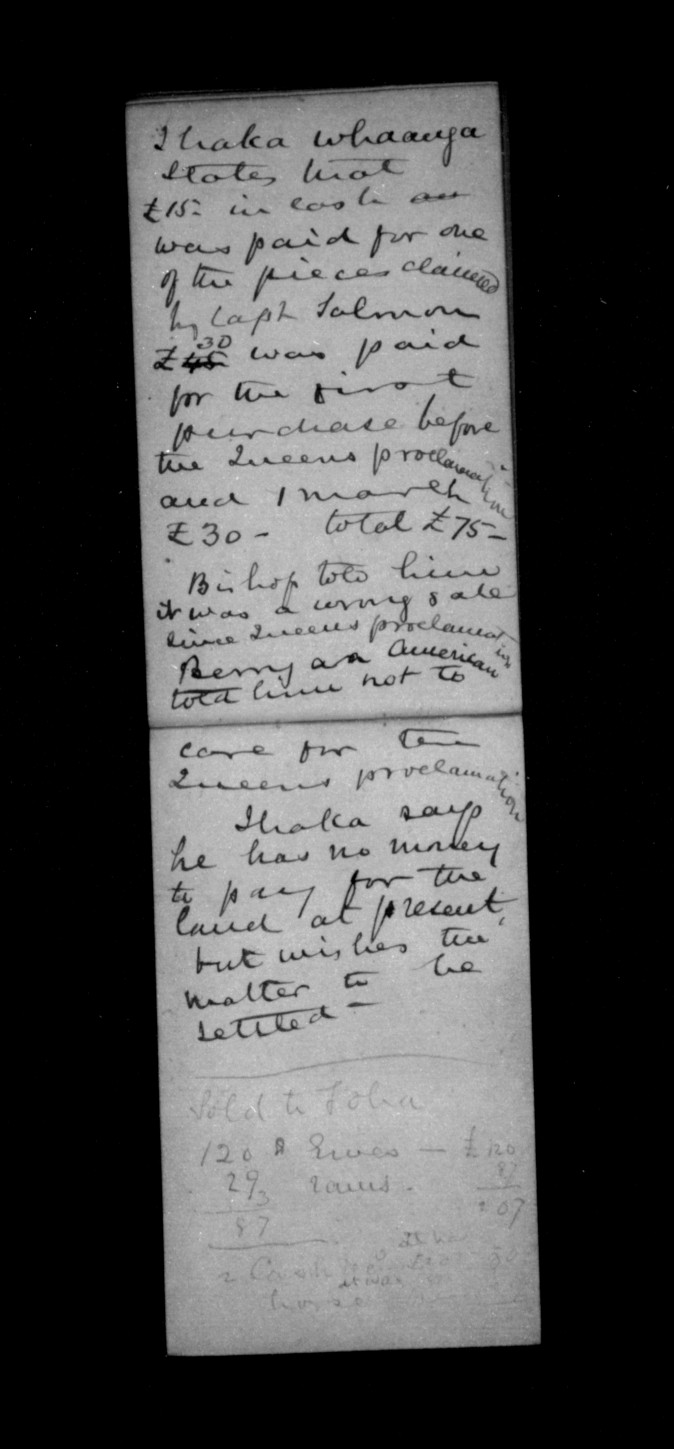 Ihaka Whaanga
states that
£15- in cash an
was paid for one
of the pieces claimed
by Capt Salmon
£45 30 was paid
for the first
purchase before
the Queens proclamation
and 1 march
£30- total £75-
Bishop told him
it was a wrong sale
since Queens proclamation
Berry an American
told him not to
care for the
Queens proclamation
Ihaka says
he has no money
to pay for the
land at present,
but wishes the
matter to be
settled-
Sold to
120 Ewes - £120
29 rams. 87
3 207
87
2 Cash
horse